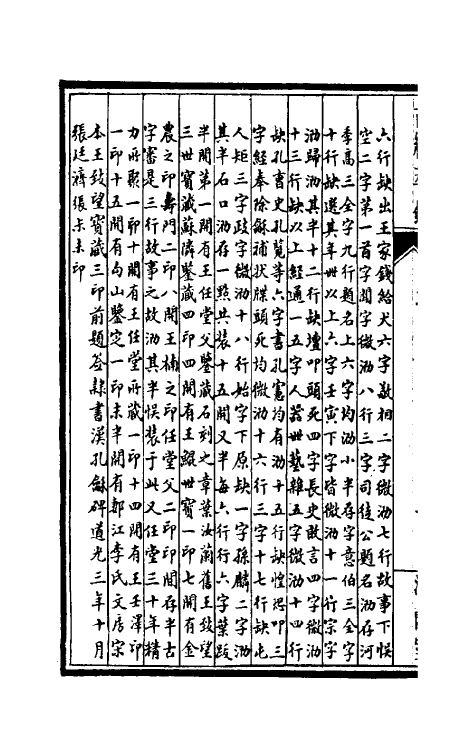 六行缺出王家錢給犬六字敬相二字微泐七行故事下悞
空二字第一首字閒字微泐八行三字司徒公題名泐存河
季高三全字九行題名上六字均泐小半存字意伯三全字
十行缺選其年卌以上六字壬寅下字皆微泐十一行宗字
泐歸泐其半十二行缺壇叩頭死四字長史敢言四字微泐
十三行缺以上經通一五字人卌藝雜五字微泐十四行
缺孔書史孔覽等六字書孔憲均有泐十五行缺惶恐叩三
字經奉除龢補狀牒頭死均微泐十六行三字十七行缺屯
人矩三字政字微泐十八行始字下原缺一字孫麟二字泐
其半石口泐存一㸃共裝十五開又半每六行行六字葉跋
半開第一開有王任堂父鑒藏石刻之章葉汝蘭舊王致望
三世寶藏蘇隣鑒藏四印四開有王鯤世寶一印七開有金
農之印壽門二印八開王楠之印任堂父二印印開存半古
字審是三行故事之故泐其半悞裝于此又任堂三十年精
力所聚一印十開有王任堂所藏一印十四開有王王澤印
一印十五開有句山鑒定一印末半開有郪江李氏文房宋
本王致望寶藏三印前題簽隸書漢孔龢碑道光三年十月
張廷濟張未未印